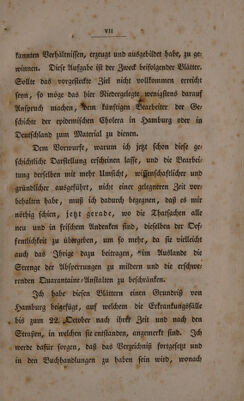 VII
kannten Verhältnissen, erzeugt und ausgebildet habe, zu ge-
winnen. Diese Aufgabe ist der Zweck beifolgender Blätter.
Sollte das vorgesteckte Ziel nicht vollkommen erreicht
sein, so möge das hier Niedergelegte wenigstens darauf
Anspruch machen, dem künftigen Bearbeiter der Ge-
schichte der epidemischen Cholera in Hamburg oder in
Deutschland zum Material zu dienen.
Dem Vorwurfe, warum ich jetzt schon diese ge-
schichtliche Darstellung erscheinen lasse, und die Bearbei-
tung derselben mit mehr Umsicht, wissenschaftlicher und
gründlicher ausgeführt, nicht einer gelegneren Zeit vor-
behalten habe, muß ich dadurch begegnen, daß es mir
nöthig schien, jetzt gerade, wo die Thatsachen alle
neu und in frischem Andenken sind, dieselben der Oef-
fentlichkeit zu übergeben, um so mehr, da sie vielleicht
auch das Ihrige dazu beitragen, im Auslande die
Strenge der Absperrungen zu mildern und die erschwe-
renden Quarantaine-Anstalten zu beschränken.
Ich habe diesen Blättern einen Grundriß von
Hamburg beigefügt, auf welchem die Erkrankungsfälle
bis zum 22. October nach ihrer Zeit und nach den
Straßen, in welchen sie entstanden, angemerkt sind. Ich
werde dafür sorgen, daß das Verzeichniß fortgesetzt und
in den Buchhandlungen zu haben sein wird, wonach